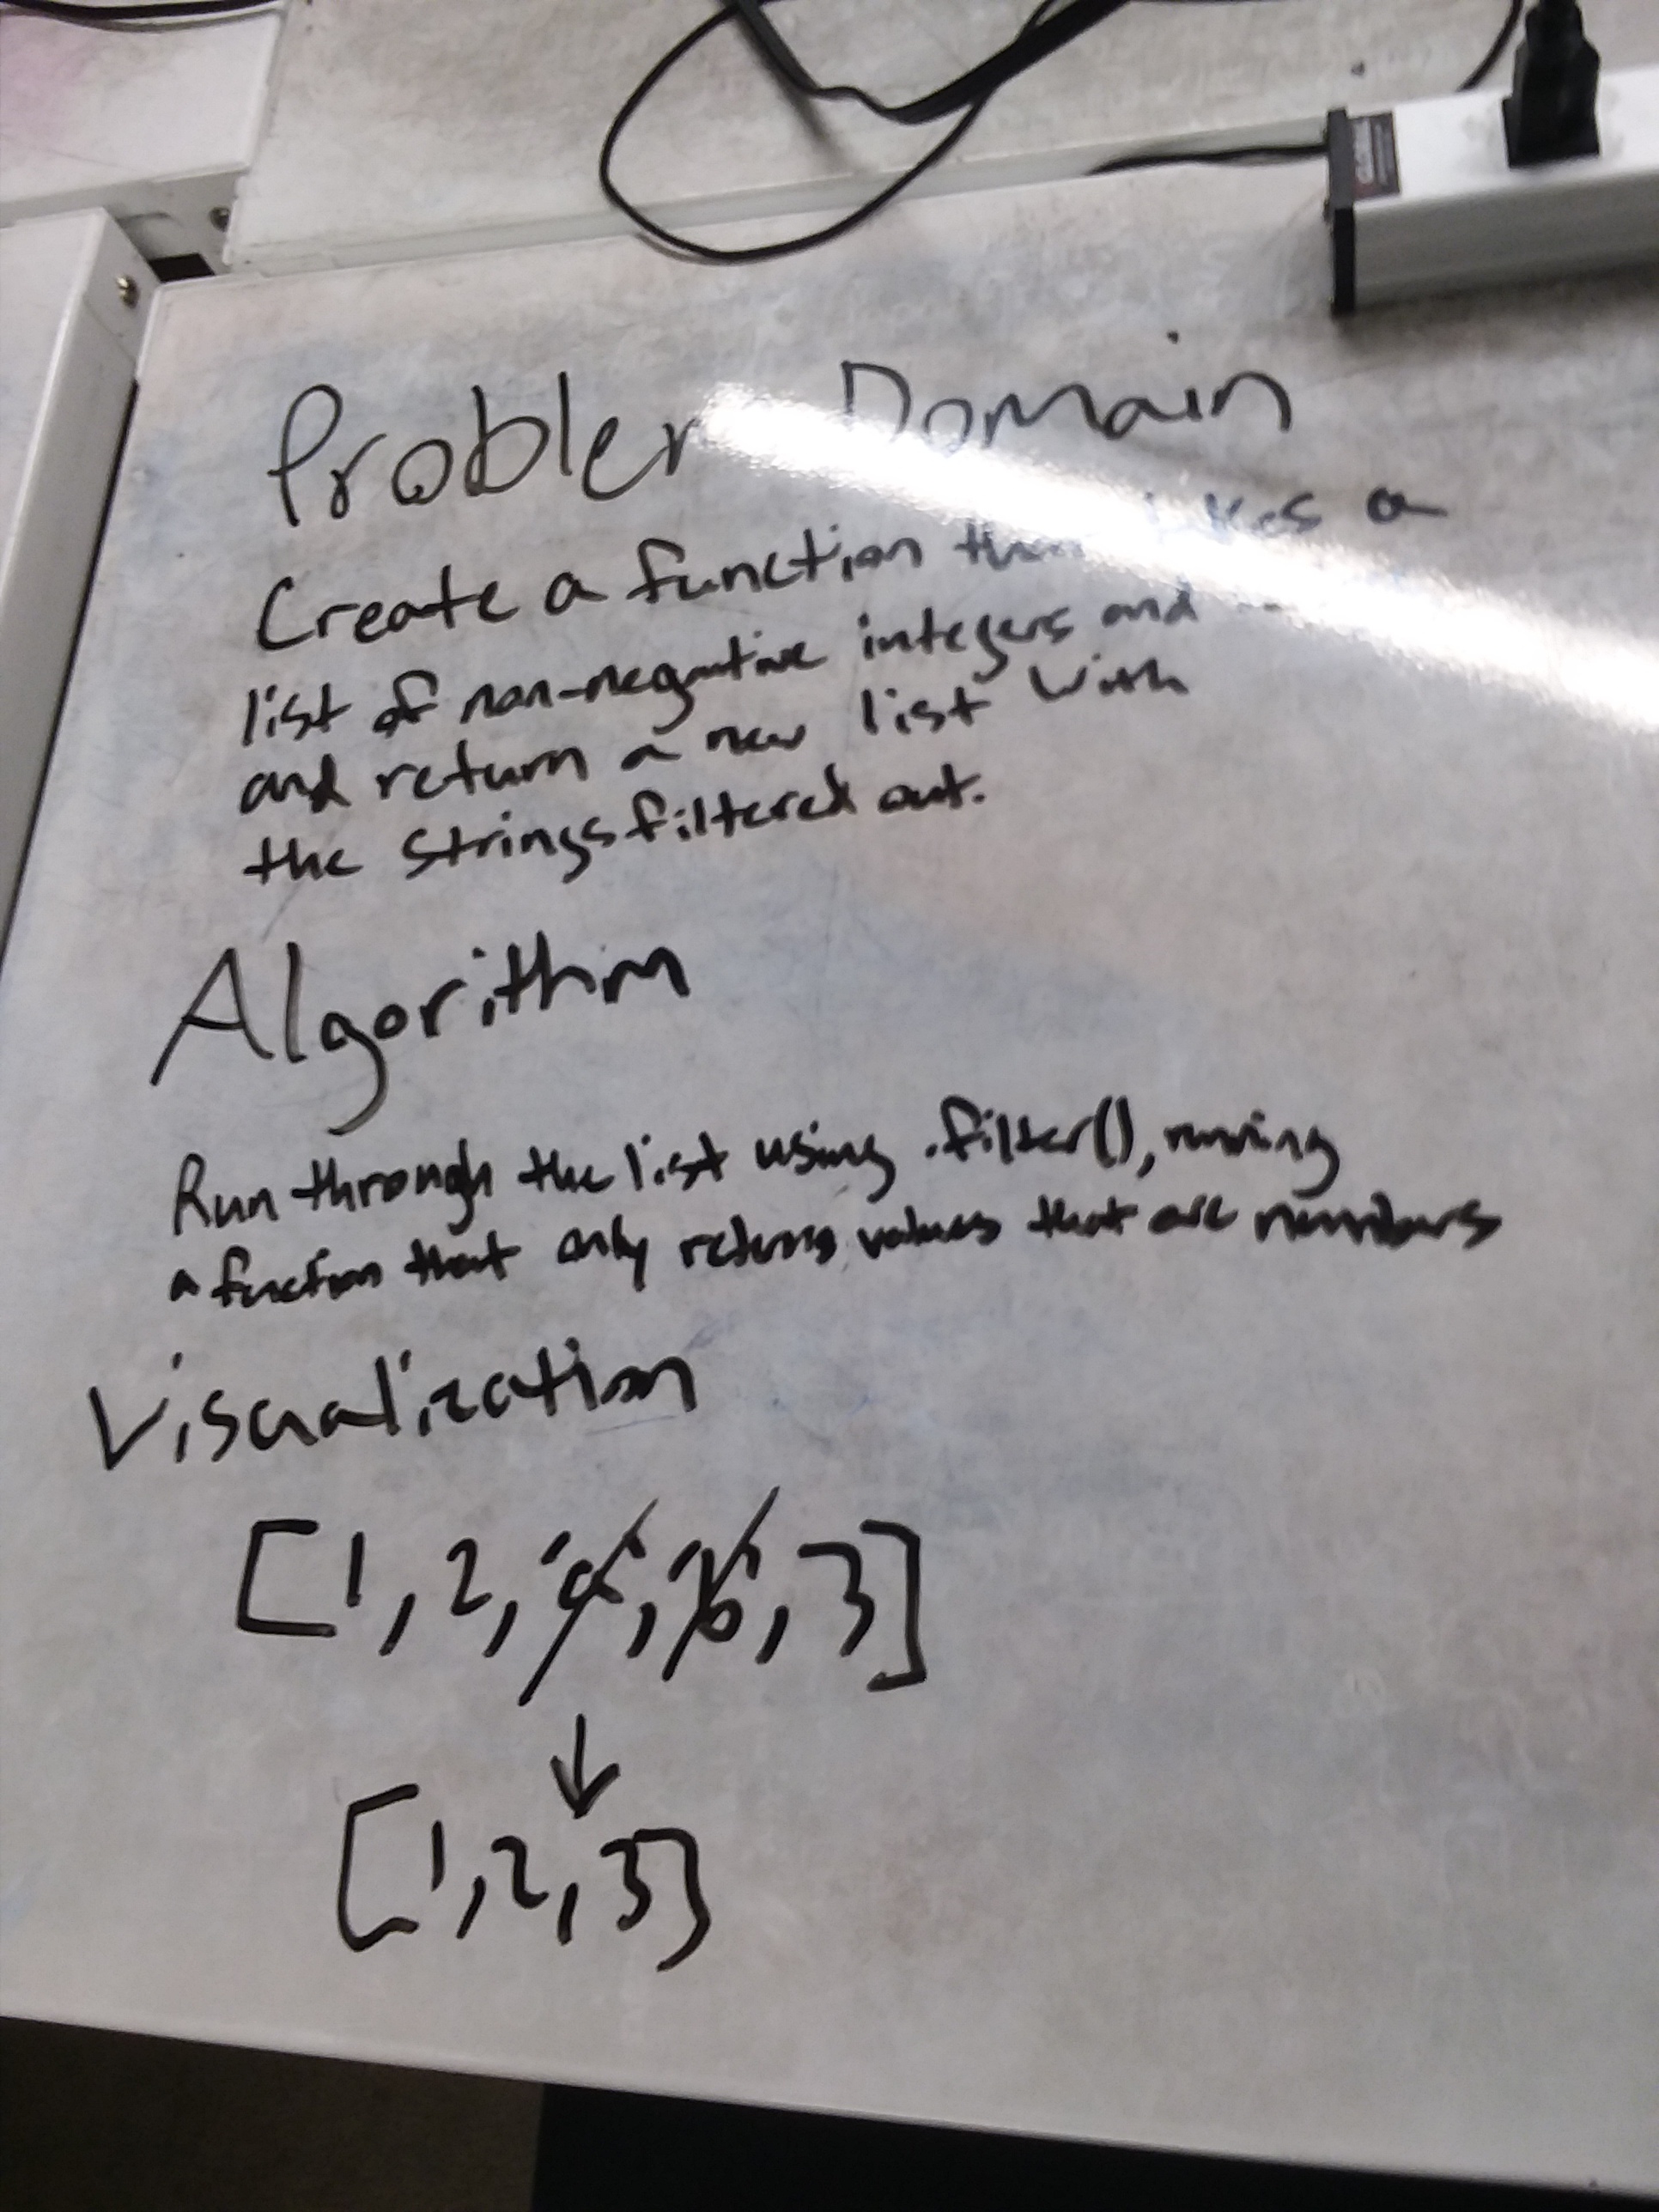 Problem Domain
Create a function that takes a
list of non-negative integers and
and return a new list with
the strings filtered out.
Algorithm
Run through the list using .filter(), running
a function that only returns values that are numbers
Visualization
[1, 2, 'a', 'b', 3]
↓
[1, 2, 3]